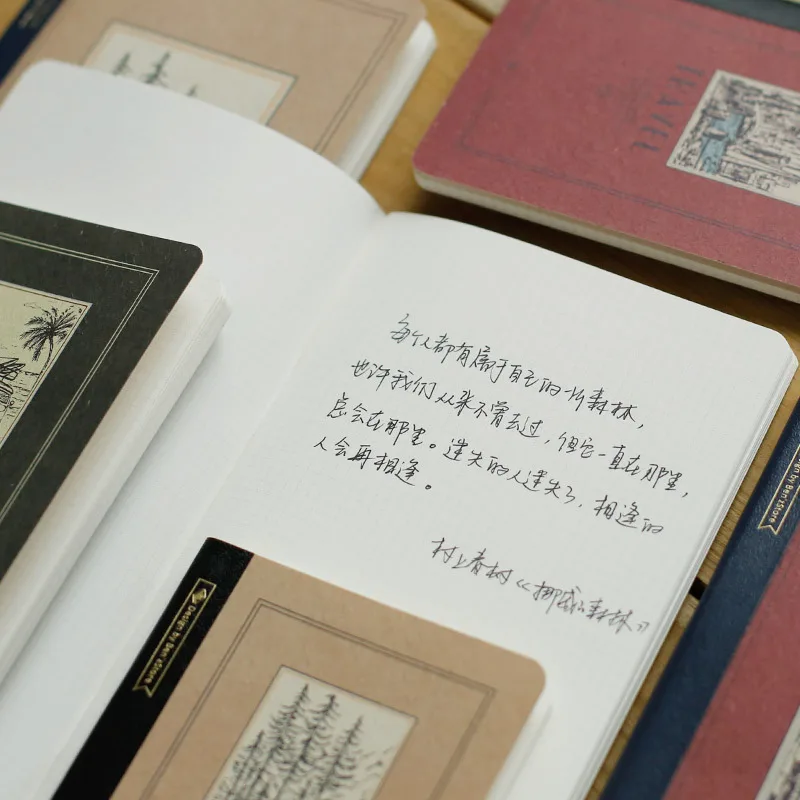 TRAVEL
每个人都有属于自己的一片森林，
也许我们从来不曾去过，但它一直在那里，
总会在那里。迷失的人迷失了，相逢的
人会再相逢。
村上春树《挪威的森林》
Design by Ben'sStore
Design by Ben'sStore